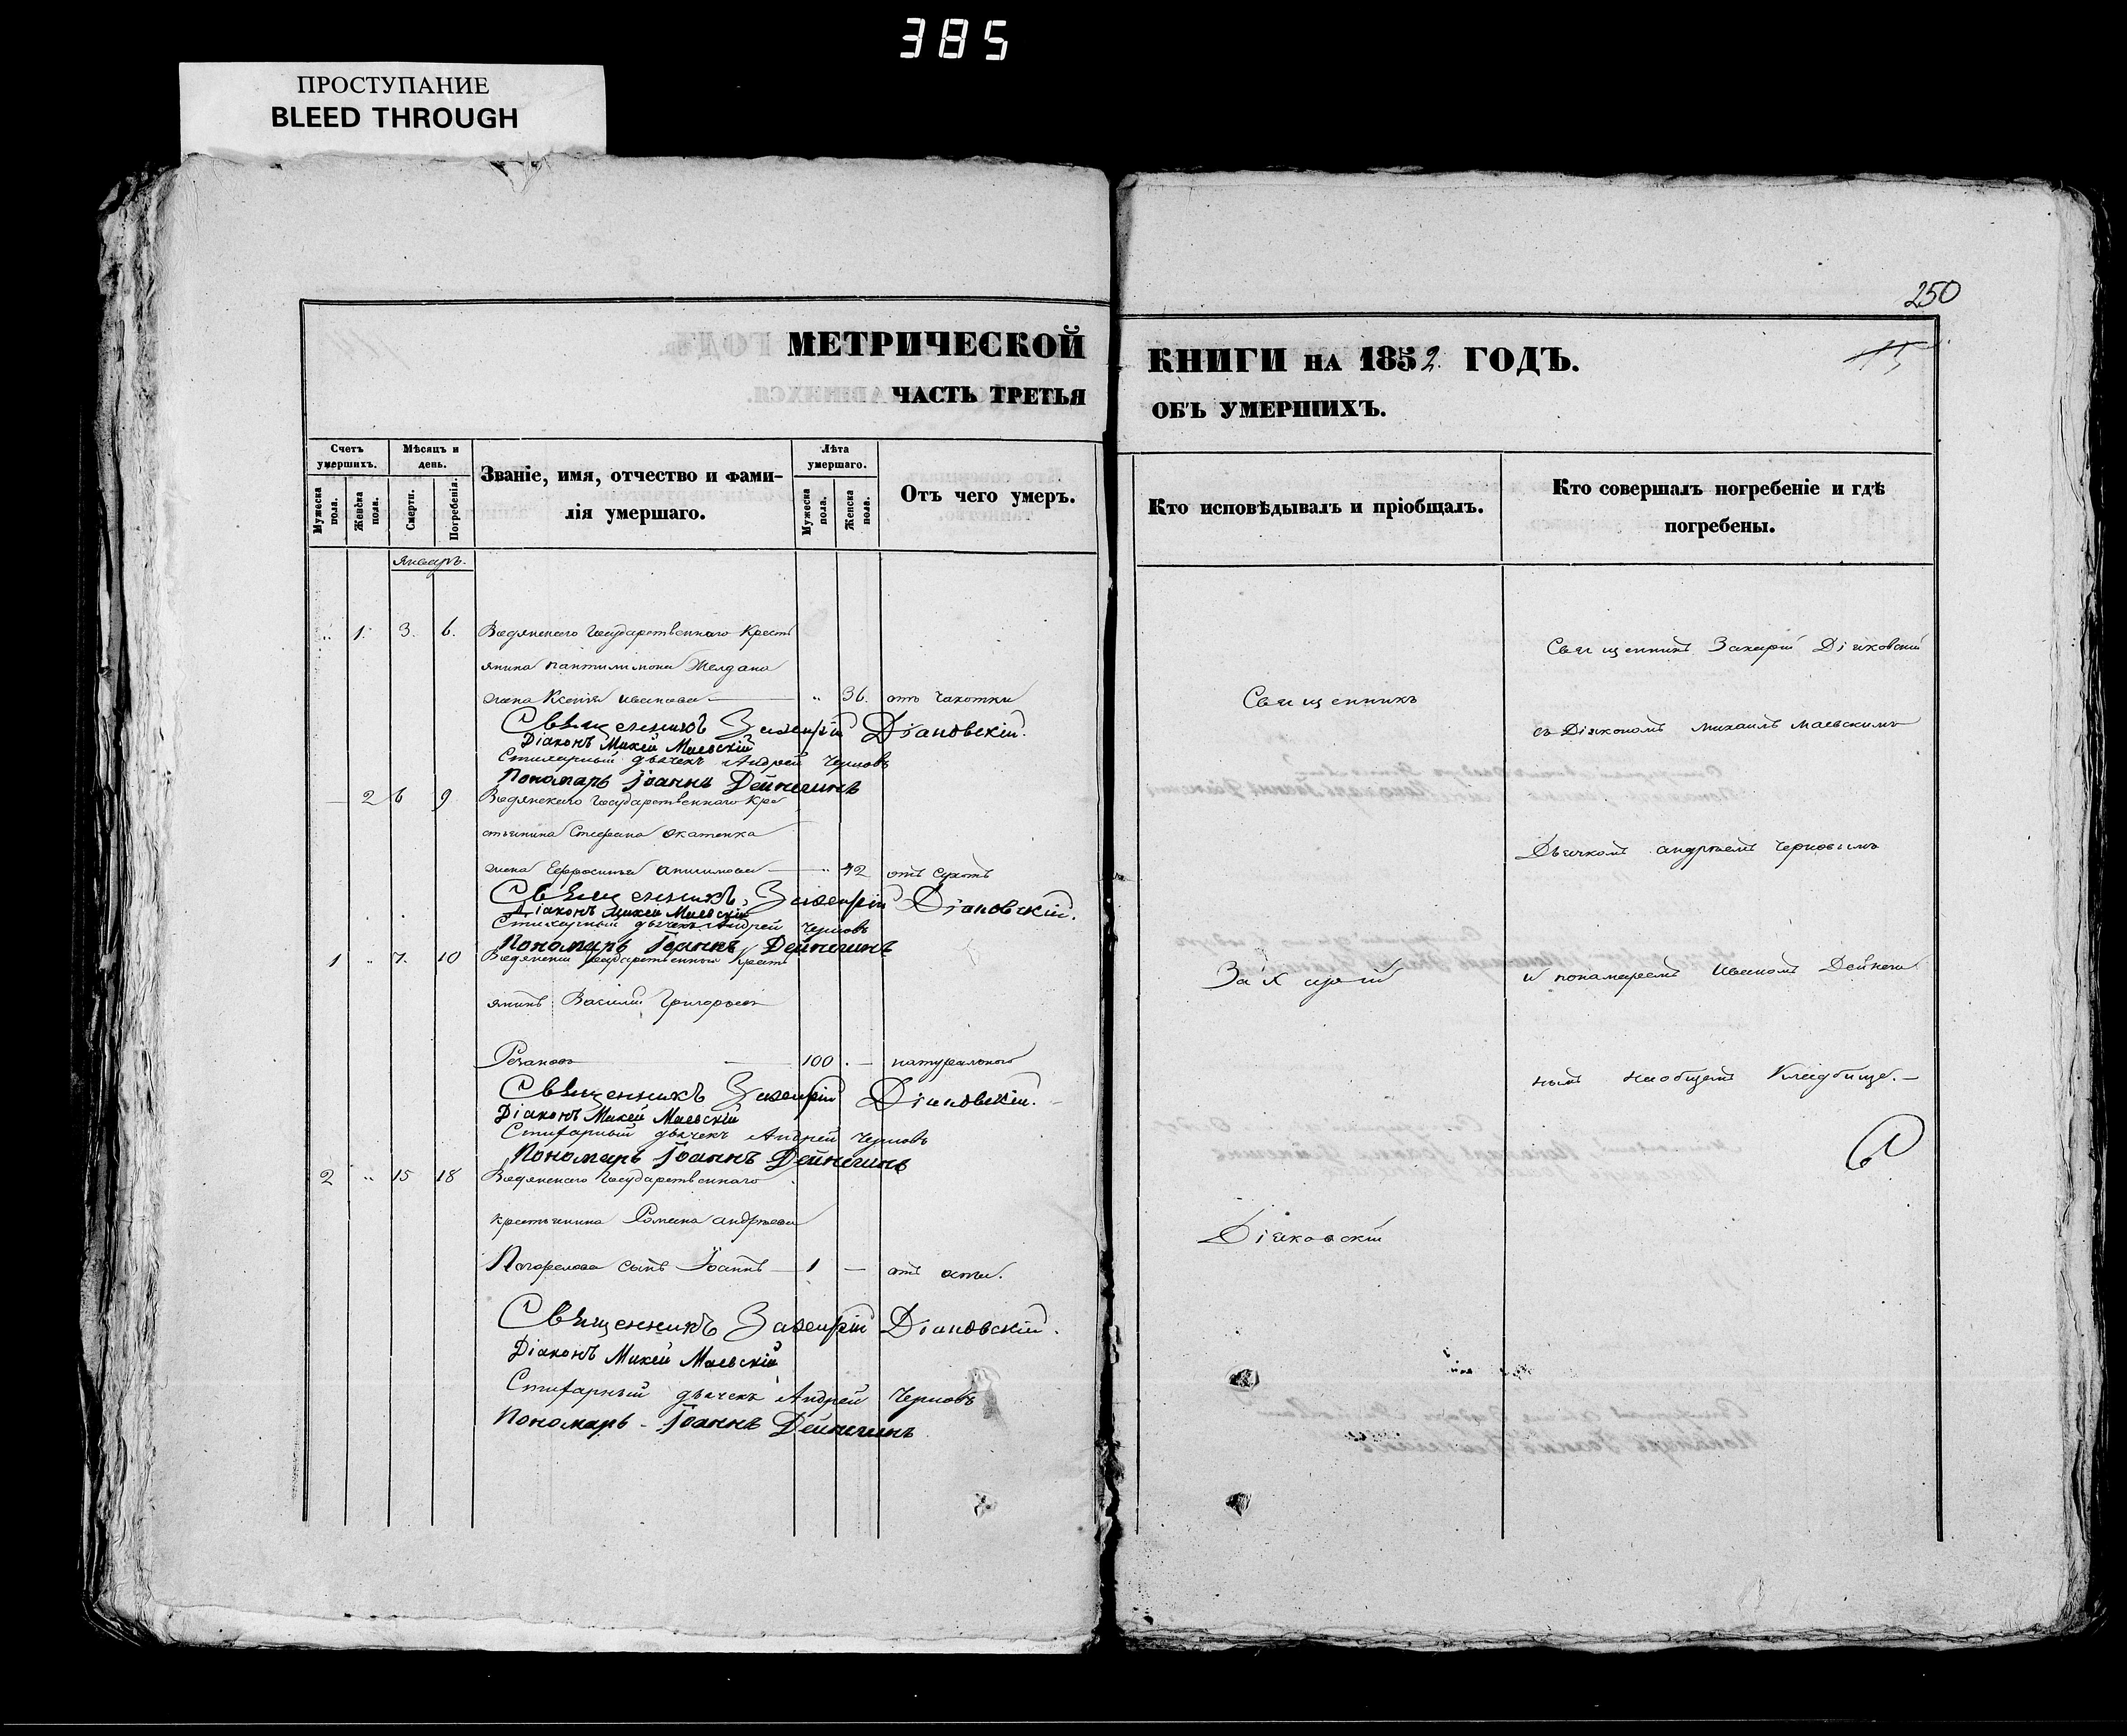 385
ПРОСТУПАНИЕ
BLEED THROUGH
250
МЕТРИЧЕСКОЙ
ЧАСТЬ ТРЕТЬЯ
Счетъ умершихъ.
Мужеска пола.
Женска пола.
Мѣсяцъ и день.
Смерти.
Погребенія.
Званіе, имя, отчество и фами-
лія умершаго.
Лѣта умершаго.
Мужеска пола.
Женска пола.
Отъ чего умеръ.
Январь.
„ 1. 3. 6. Водянскаго Государственнаго Кресть
янина Пантилимона Желдака
жена Ксенія Иванова — „ 36. отъ чахотки
Священникъ Захарій Діаковскій.
Діаконъ Михей Маевскій
Стихарный дьячекъ Андрей Черновъ
Пономарь Іоаннъ Дейнегинъ
— 2 6 9 Водянскаго Государственнаго Кре
стьянина Стефана
жена Ефросинья Анисимова — „ 42 отъ сухотъ
Священникъ Захарій Діаковскій.
Діаконъ Михей Маевскій
Стихарный дьячекъ Андрей Черновъ
Пономарь Іоаннъ Дейнегинъ
1 „ 7. 10 Водянскій Государственный Кресть
янинъ Василій Григорьевъ
100 . — натуральной
Священникъ Захарій Діаковскій.
Діаконъ Михей Маевскій
Стихарный дьячекъ Андрей Черновъ
Пономарь Іоаннъ Дейнегинъ
2 „ 15 18 Водянскаго Государственнаго
крестьянина Романа Андреева
Погорелова сынъ Іоаннъ — 1 — отъ оспы.
Священникъ Захарій Діаковскій.
Діаконъ Михей Маевскій
Стихарный дьячекъ Андрей Черновъ
Пономарь - Іоаннъ Дейнегинъ
КНИГИ НА 1852 ГОДЪ.
ОБЪ УМЕРШИХЪ.
Кто исповѣдывалъ и пріобщалъ.
Кто совершалъ погребеніе и гдѣ
погребены.
Священникъ
Захарій
Діяковскій
Священникъ Захарій Діяковскій
съ Діякономъ Михаилъ Маевскимъ
Дьячкомъ Андреемъ Черновымъ
и пономаремъ Иваномъ Дейнеги
нымъ наобщемъ Кладбище.—